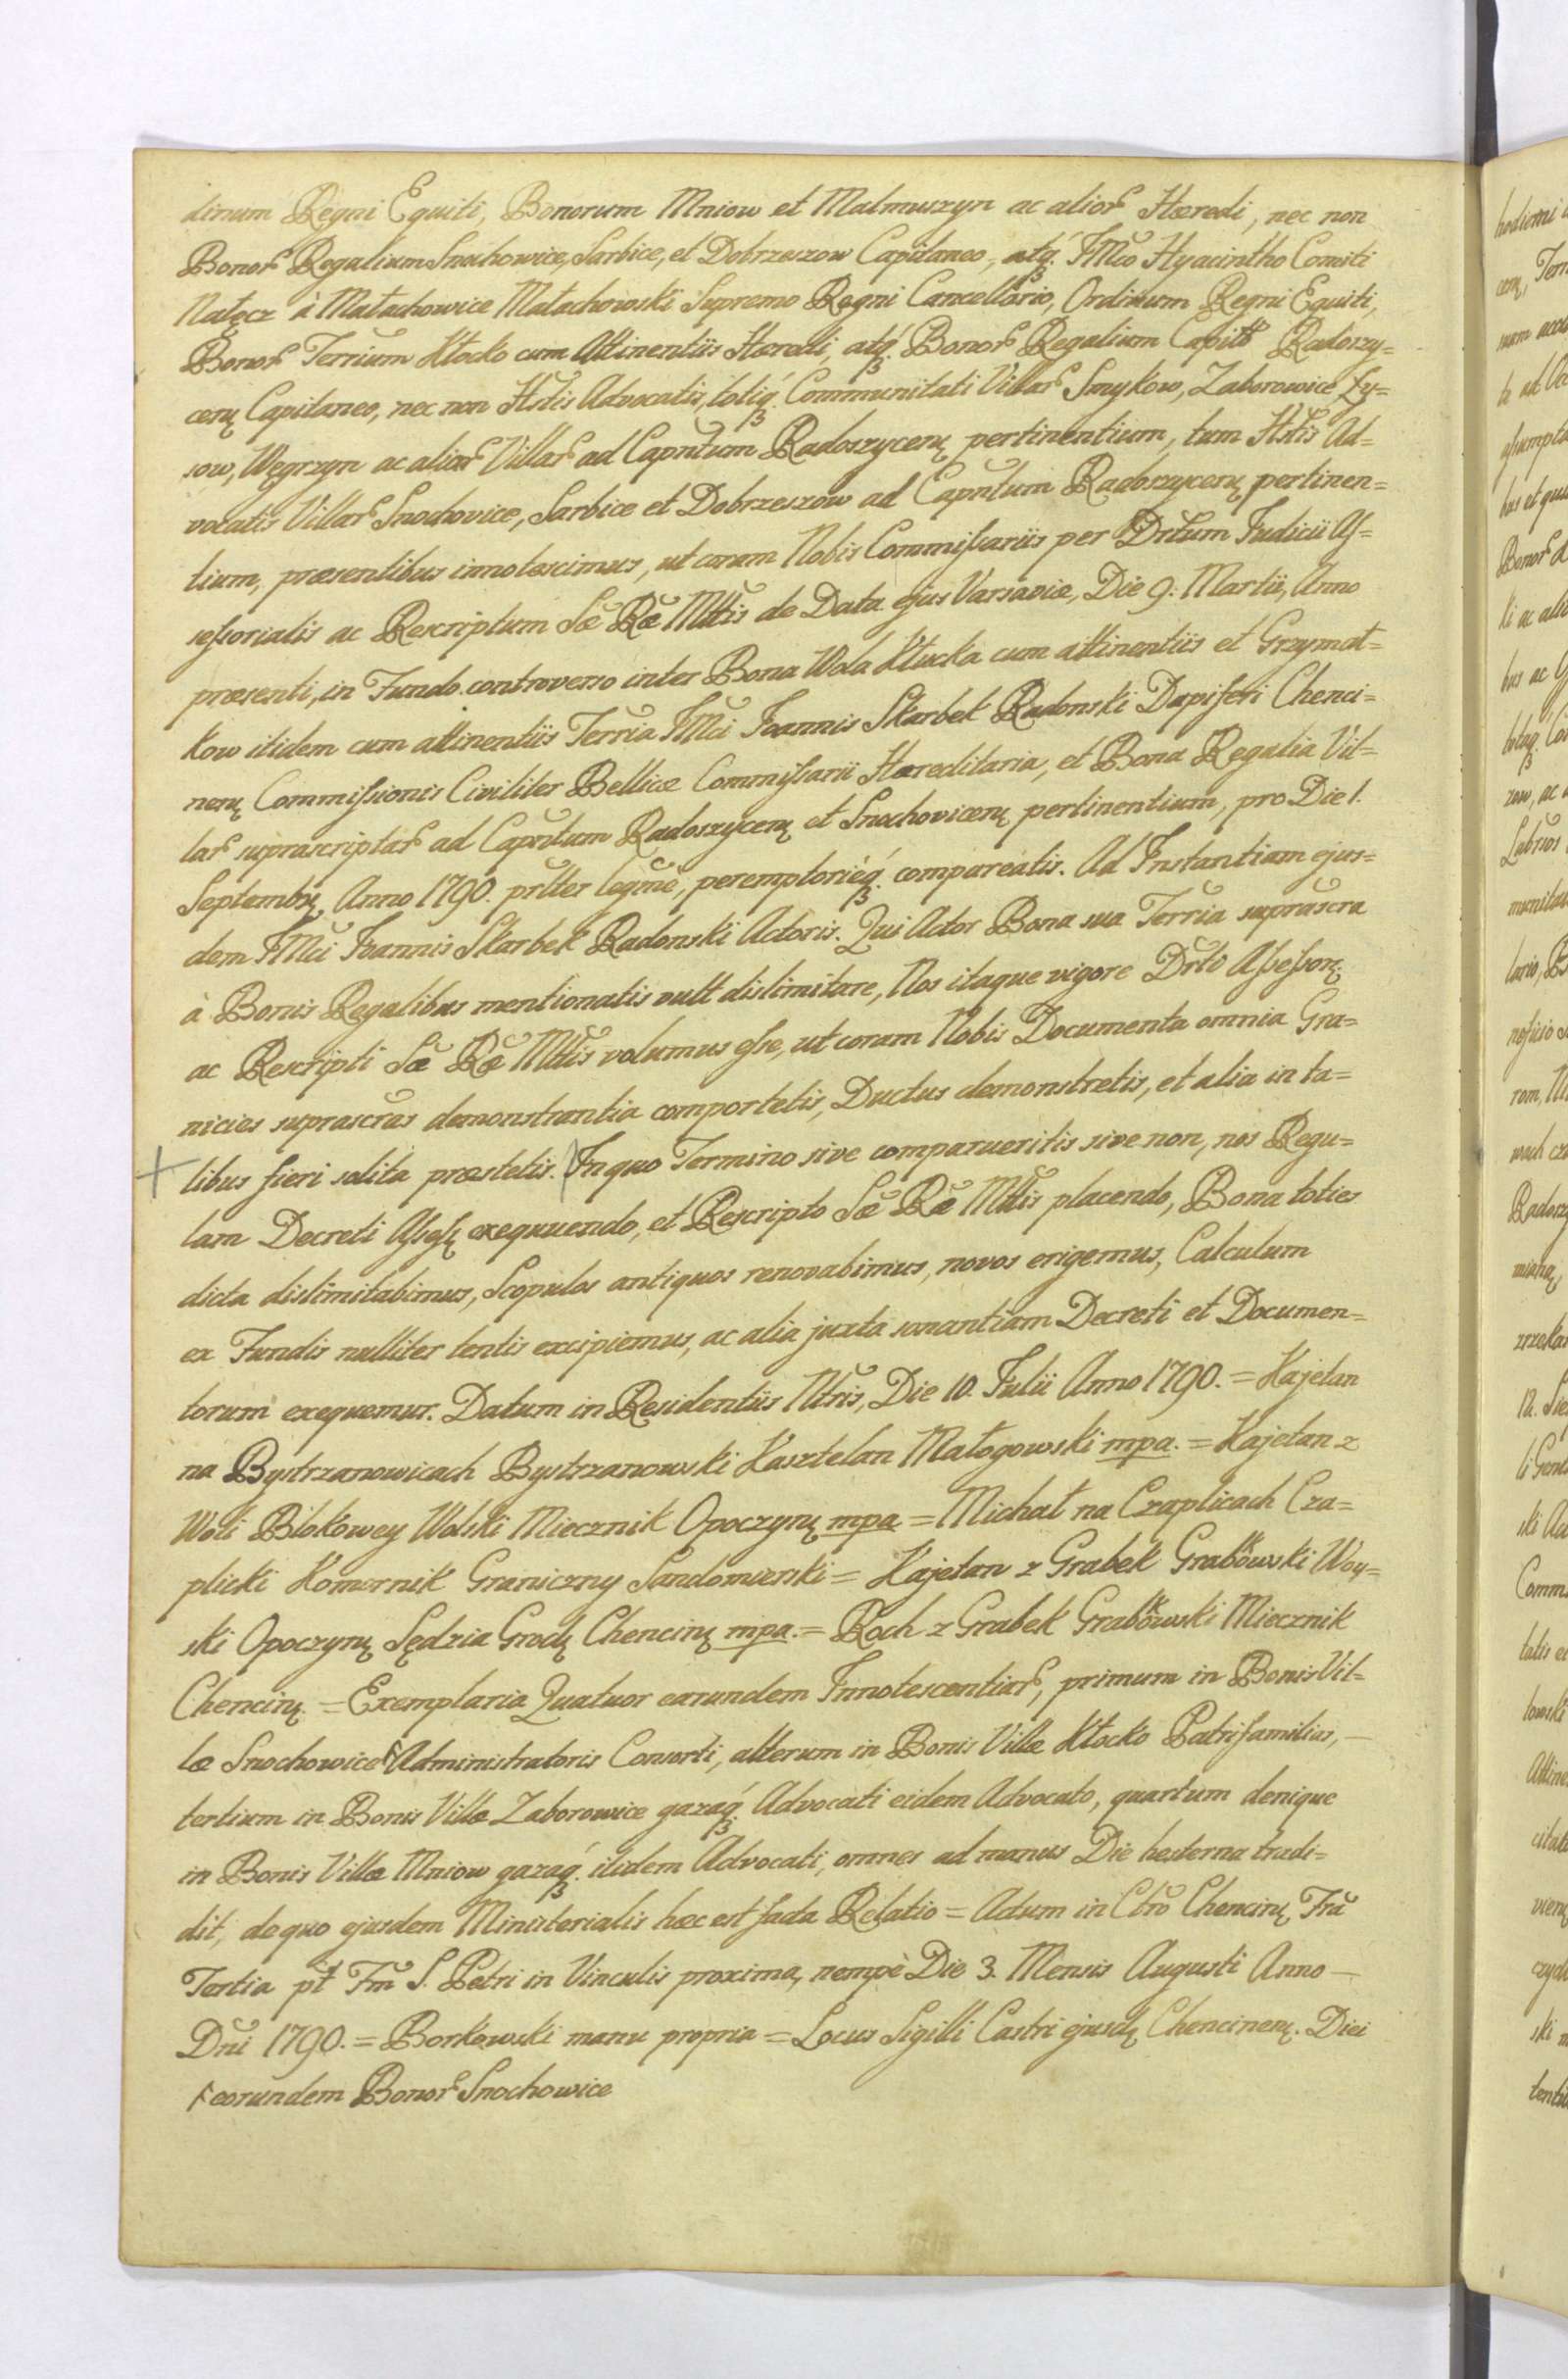 dinum Regni Equiti, Bonorum Mniow et Malmurzyn ac alior Hæredi, nec non
Bonor Regalium Snochowice, Sarbice, et Dobrzeszow Capitaneo, atq́ꝫ Illmco Hyacintho Comiti
Nałęcz à Małachowice Małachowski Supremo Regni Cancellario, Ordinum Regni Equiti,
Bonor Terrium Kłocko cum Attinentiis Hæredi, atq́ꝫ Bonor Regalium Capitt Radoszy=
ceng Capitaneo, nec non Hstis Advocatis, totiq́ꝫ Communitati Villar Smykow, Zaborowice Ły=
sow, Węgrzyn ac alior Villar ad Capntum Radoszyceng pertinentium, tum Hstis Ad=
vocatis Villar Snochovice, Sarbice et Dobrzeszow ad Capntum Radoszyceng pertinen=
tium, præsentibus innotescimus, ut coram Nobis Commissariis per Drtum Judicii As=
sessorialis ac Rescriptum Sæ Ræ Mttis de Data ejus Varsaviæ, Die 9. Martii, Anno
præsenti, in Fundo controverso inter Bona Wola Kłucka cum attinentiis et Grzymał=
kow itidem cum attinentiis Terria Illmci Joannis Skarbek Radonski Dapiferi Chenci=
neng Commissionis Civiliter Bellicæ Commissarii Hæreditaria, et Bona Regalia Vil=
lar suprascriptar ad Capntum Radoszyceng et Snochoviceng pertinentium, pro Die 1.
Septembrg Anno 1790. prlter legmè, peremptorièq́ꝫ compareatis. Ad Instantiam ejus=
dem Illmci Joannis Skarbek Radonski Actoris. Qui Actor Bona sua Terria suprascra
à Bonis Regalibus mentionatis vult dislimitare, Nos itaque vigore Drto Assessorg
ac Rescripti Sæ Ræ Mttis volumus esse, ut coram Nobis Documenta omnia Gra=
nicies suprascras demonstrantia comportetis, Ductus demonstretis, et alia in ta=
+ libus fieri solita præstetis. In quo Termino sive comparueritis sive non, nos Regu=
lam Decreti Assesg exequuendo, et Rescripto Sæ Ræ Mttis placendo, Bona toties
dicta dislimitabimus, Scopulos antiquos renovabimus, novos erigemus, Calculum
ex Fundis nulliter tentis excipiemus, ac alia juxta sonantiam Decreti et Documen=
torum exequemur. Datum in Residentiis Ntris, Die 10. Julii Anno 1790. = Kajetan
na Bystrzanowicach Bystrzanowski Kasztelan Małogowski mpa. = Kajetan z
Woli Blokowey Wolski Miecznik Opoczyng mpa = Michał na Czaplicach Cza=
plicki Komornik Graniczny Sandomierski = Kajetan z Grabek Grabkowski Woy=
ski Opoczyng Sędzia Grodg Chencing mpa. = Roch z Grabek Grabkowski Miecznik
Chencing. = Exemplaria Quatuor earundem Innotescentiar, primum in Bonis Vil=
læ Snochowice Administratoris Consorti, alterum in Bonis Villæ Kłocko Patrifamilias, —
tertium in Bonis Villæ Zaborowice gazaq́ꝫ Advocati eidem Advocato, quartum denique
in Bonis Villæ Mniow gazaq́ꝫ itidem Advocati, omnes ad manus Die hesterna tradi=
dit, de quo ejusdem Ministerialis hæc est facta Relatio = Actum in Ctro Chencing Fra
Tertia pt Fm S. Petri in Vinculis proxima, nempè Die 3. Mensis Augusti Anno —
Dni 1790. = Borkowski manu propria = Locus Sigilli Castri ejusdg Chencineng. Diei
eorundem Bonor Snochowice